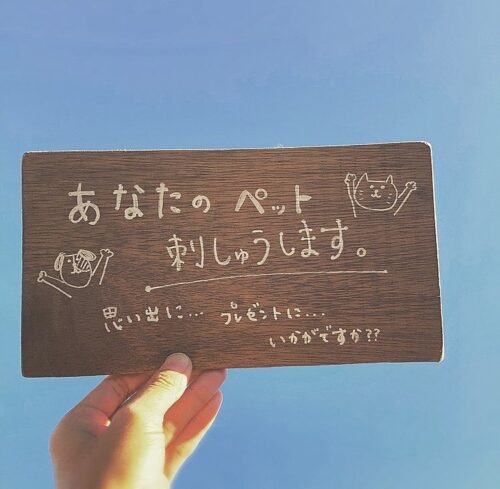 あなたの ペット
刺しゅうします。
思い出に… プレゼントに…
いかがですか??